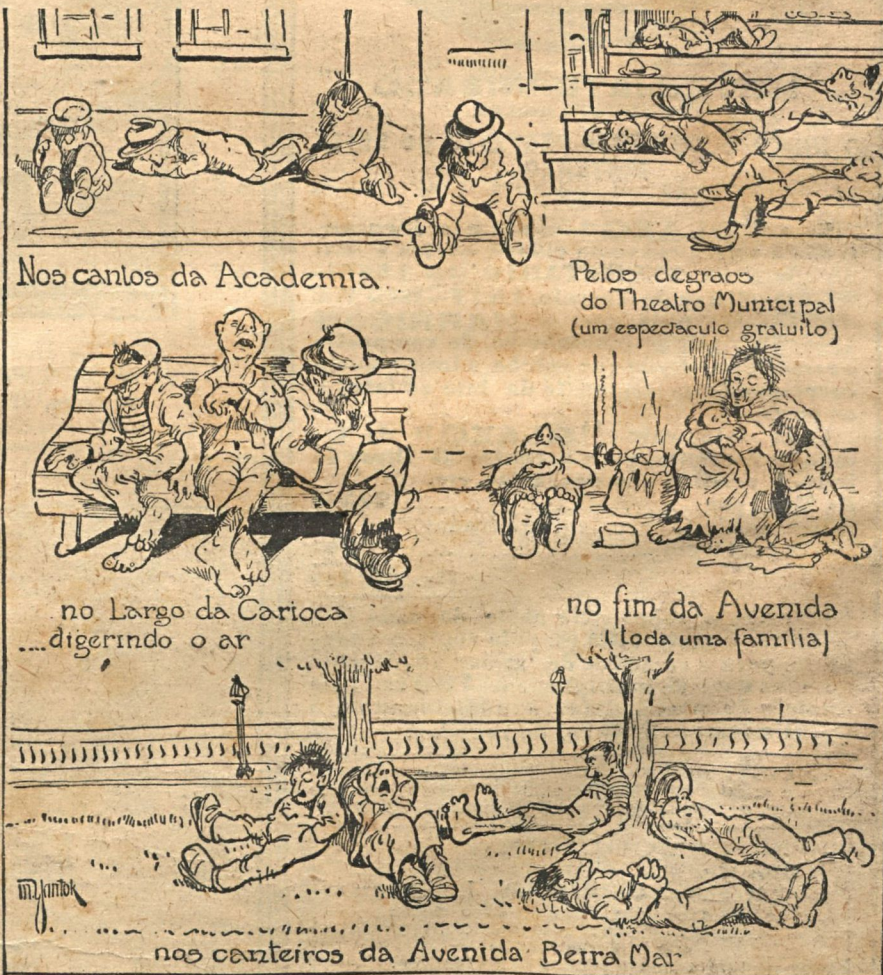 Nos cantos da Academia..
Pelos degraos
do Theatro Municipal
(um espectaculo gratuito)
no Largo da Carioca
....digerindo o ar
no fim da Avenida
(toda uma familia)
M. Yantok
nos canteiros da Avenida Beira Mar